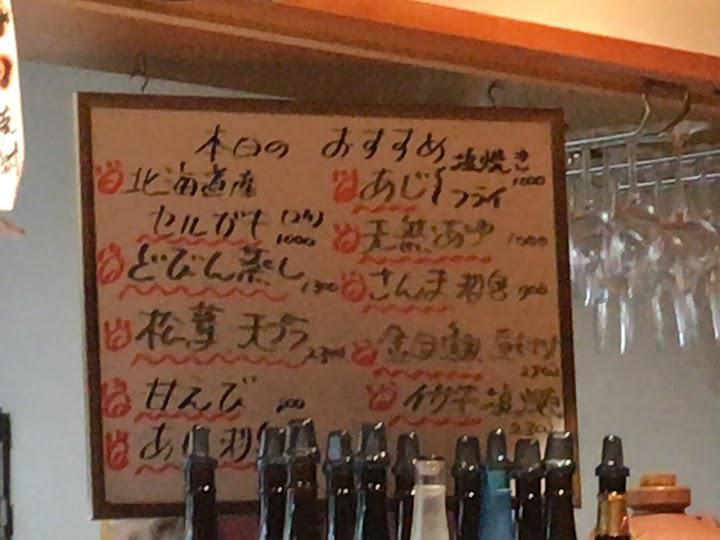 本日の おすすめ
北海道産
セルガキ (2ケ)
1000
どびん蒸し
1300
松茸 天ぷら
2300
甘えび
あじ
塩焼き
フライ
1000
天然あゆ 1000
さんま 刺身 900
金目鯛
2300
イサキ 塩焼
2300